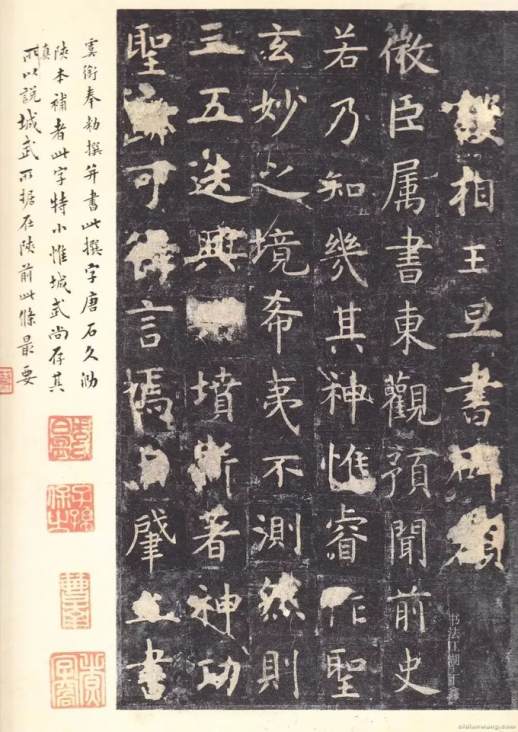 撰相王旦書碑額
微臣属書東觀預聞前史
若乃知幾其神惟睿作聖
玄妙之境希夷不測然則
三五迭興墳斯著神功
聖迹可得言焉自肇立書
虞銜奉勅撰并書此撰字唐石久泐
陝本補者此字特小惟城武尚存其真
所以說城武所据在陝前此條最要
书法江湖